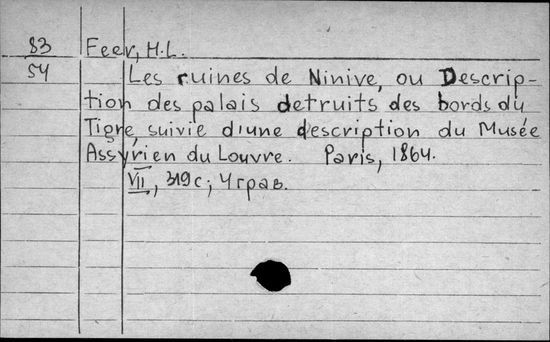 83 Feer, H.L.
54 Les ruines de Ninive, ou Descrip-
tion des palais detruits des bords du
Tigre, suivie d'une description du Musée
Assyrien du Louvre. Paris, 1864.
VII, 319 c; 4 грав.